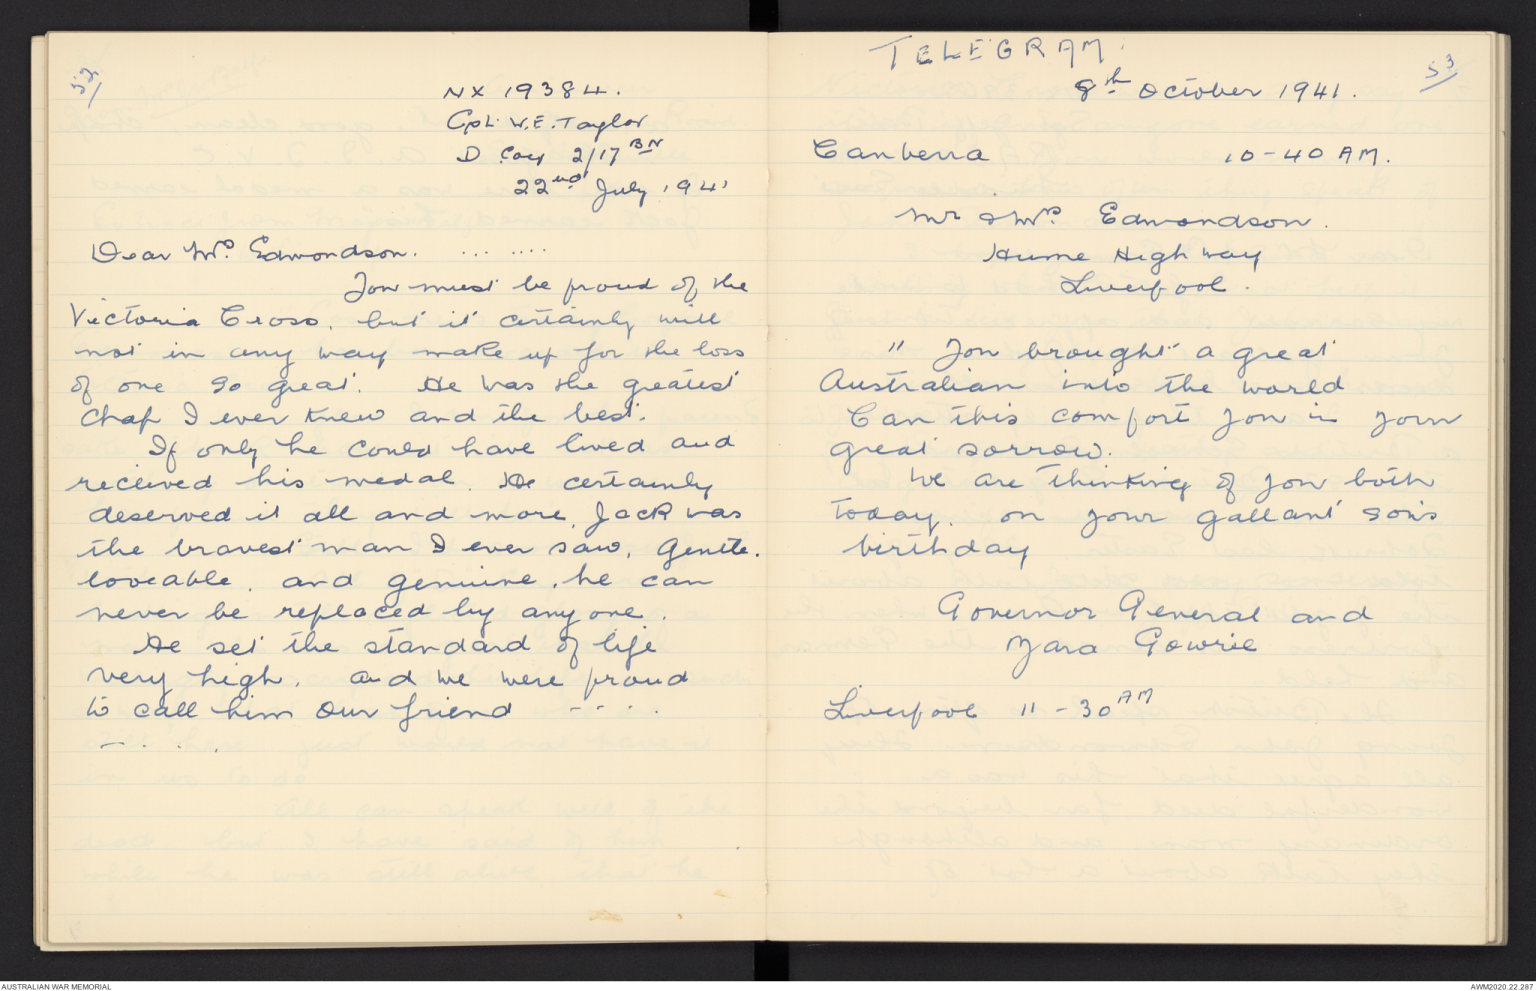 52/
NX 19384.
Cpl. W.E. Taylor
D Coy 2/17 BN
22nd July 1941
Dear Mrs Edmondson. ... ....
You must be proud of the
Victoria Cross, but it certainly will
not in any way make up for the loss
of one so great. He was the greatest
chap I ever knew and the best.
If only he could have lived and
received his medal. He certainly
deserved it all and more, Jack was
the bravest man I ever saw. Gentle.
loveable. and genuine. he can
never be replaced by any one.
He set the standard of life
very high. and we were proud
to call him our friend - - - .
- . . .
TELEGRAM.
53/
8th October 1941.
Canberra 10-40 AM.
Mr & Mrs Edmondson.
Hume Highway
Liverpool.
" You brought a great
Australian into the world
Can this comfort you in your
great sorrow.
We are thinking of you both
today. on your gallant sons
birthday
Governor General and
Zara Gowrie
Liverpool 11-30 AM
AUSTRALIAN WAR MEMORIAL
AWM2020.22.287